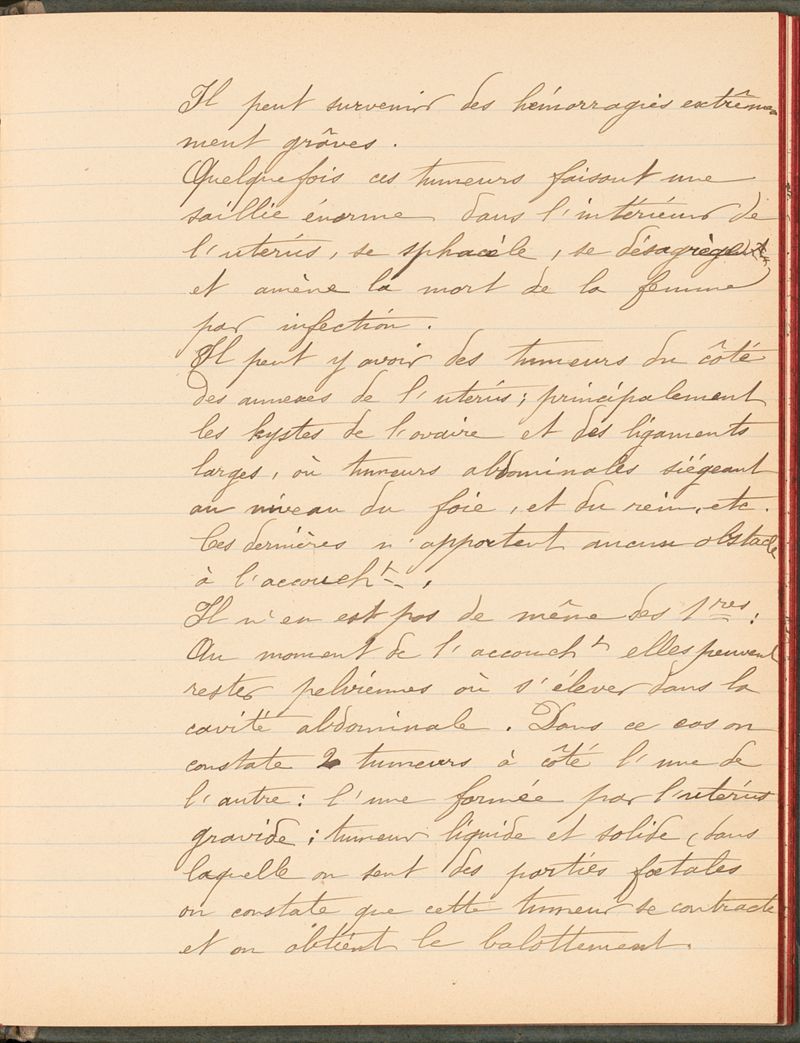 Il peut survenir des hémorragies extrême-
ment grâves.
Quelquefois ces tumeurs faisant une
saillie énorme dans l'intérieur de
l'utérus, se sphacèle, se désagrège
et amène la mort de la femme
par infection.
Il peut y avoir des tumeurs du côté
des annexes de l'utérus; principalement
les kystes de l'ovaire et des ligaments
larges, où tumeurs abdominales siégeant
au niveau du foie, et du rein, etc.
Ces dernières n'apportent aucun obstacle
à l'accouch^t.
Il n'en est pas de même des 1^res:
Au moment de l'accouch^t elles peuvent
rester pelviennes où s'élever dans la
cavité abdominale. Dans ce cas on
constate 2 tumeurs à côté l'une de
l'autre: l'une formée par l'utérus
gravide; tumeur liquide et solide, dans
laquelle on sent des parties fœtales
on constate que cette tumeur se contracte
et on obtient le balottement.